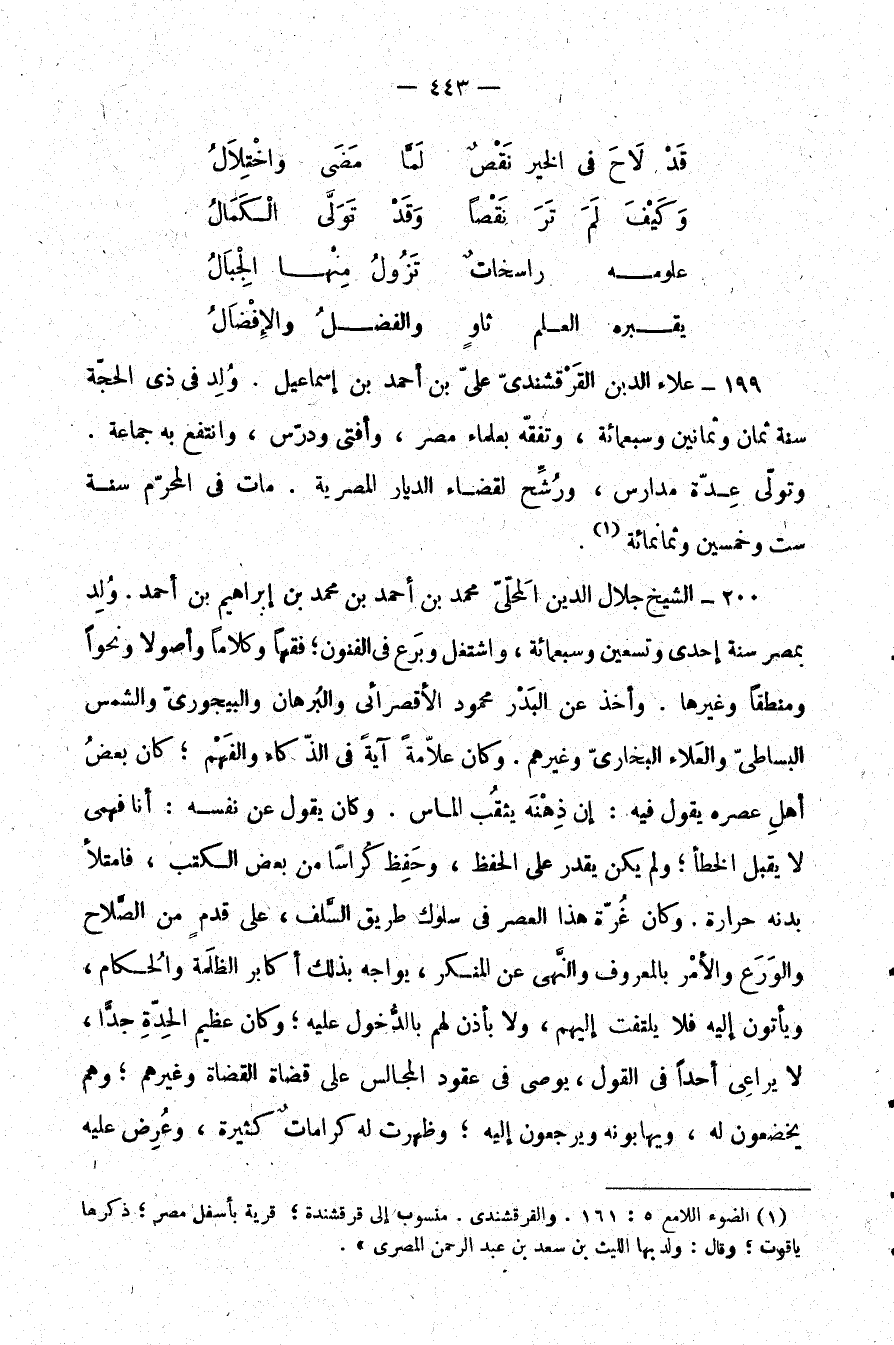 — ٤٤٣ —
قَدْ لَاحَ فى الخير نَقْصٌ لَمَّا مَضَى واخْتِلَالُ
وَكَيْفَ لَمَ تَرَ نَقْصاً وَقَدْ تَوَلَّى الْكَمَالُ
علومه راسخاتٌ تَزُولُ مِنْها الْجِبَالُ
بقبره العلم ثاوٍ والفضلُ والإِفْضَالُ
١٩٩ – علاء الدين القَرْقشندىّ علىّ بن أحمد بن إسماعيل . وُلِد فى ذى الحجّة
سنة ثمان وثمانين وسبعمائة ، وتفقّه بعلماء مصر ، وأفتى ودرّس ، وانتفع به جماعة .
وتولّى عِدّة مدارس ، ورُشِّح لقضاء الديار المصرية . مات فى المحرّم سنة
ست وخمسين وثمانمائة (١) .
٢٠٠ – الشيخ جلال الدين المَحلّىّ محمد بن أحمد بن محمد بن إبراهيم بن أحمد . وُلِد
بمصر سنة إحدى وتسعين وسبعمائة ، واشتغل وبَرَع فى الفنون ؛ فقهاً وكلاماً وأصولا ونحواً
ومنطقاً وغيرها . وأخذ عن البَدْر محمود الأقصرائى والبُرهان والبيجورىّ والشمس
البساطىّ والعَلاء البخارىّ وغيرهم . وكان علاّمةً آيةً فى الذّكاء والفَهْم ؛ كان بعضُ
أهلِ عصره يقول فيه : إن ذِهْنَه يثقُب الماس . وكان يقول عن نفسه : أنا فهمى
لا يقبل الخطأ ؛ ولم يكن يقدر على الحفظ ، وحَفِظ كُراسًا من بعض الكتب ، فامتلأ
بدنه حرارة . وكان غُرّة هذا العصر فى سلوك طريق السَّلف ، على قدم من الصَّلاح
والوَرَع والأمْر بالمعروف والنَّهى عن المنكر ، يواجه بذلك أكابر الظلَمة والحُكام ،
ويأتون إليه فلا يلتفت إليهم ، ولا يأذن لهم بالدُّخول عليه ؛ وكان عظيم الحِدّةِ جدًّا ،
لا يراعِى أحداً فى القول ، يوصى فى عقود المجالس على قضاة القضاة وغيرهم ؛ وهم
يخضعون له ، ويهابونه ويرجعون إليه ؛ وظهرت له كرامات كثيرة ، وعُرِض عليه
(١) الضوء اللامع ٥ : ١٦١ . والقرقشندى . منسوب إلى قرقشندة ؛ قرية بأسفل مصر ؛ ذكرها
ياقوت ؛ وقال : ولد بها الليث بن سعد بن عبد الرحمن المصرى » .